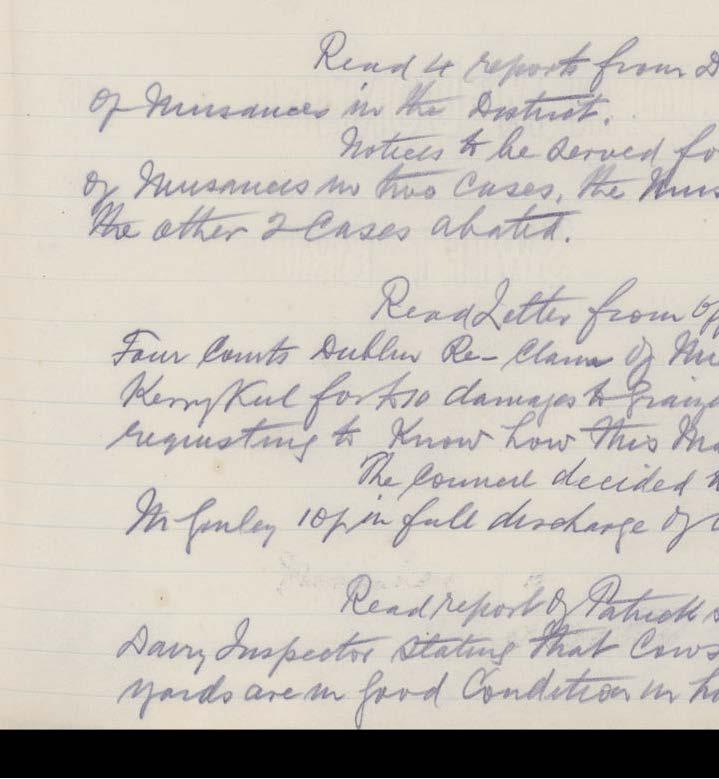 Read 4 reports from D
of Nuisances in the District.
Notices to be served fo
of Nuisances in two Cases, the Nuis
the other 2 Cases abated.
Read Letter from Of
Four Courts Dublin Re- Claim of
Kerrykeel for £10 damages to
requesting to Know how this Ma
The Council decided t
McGinley 10/- in full discharge of
Read report of Patrick
Dairy Inspector stating that Cows
yards are in good Condition in